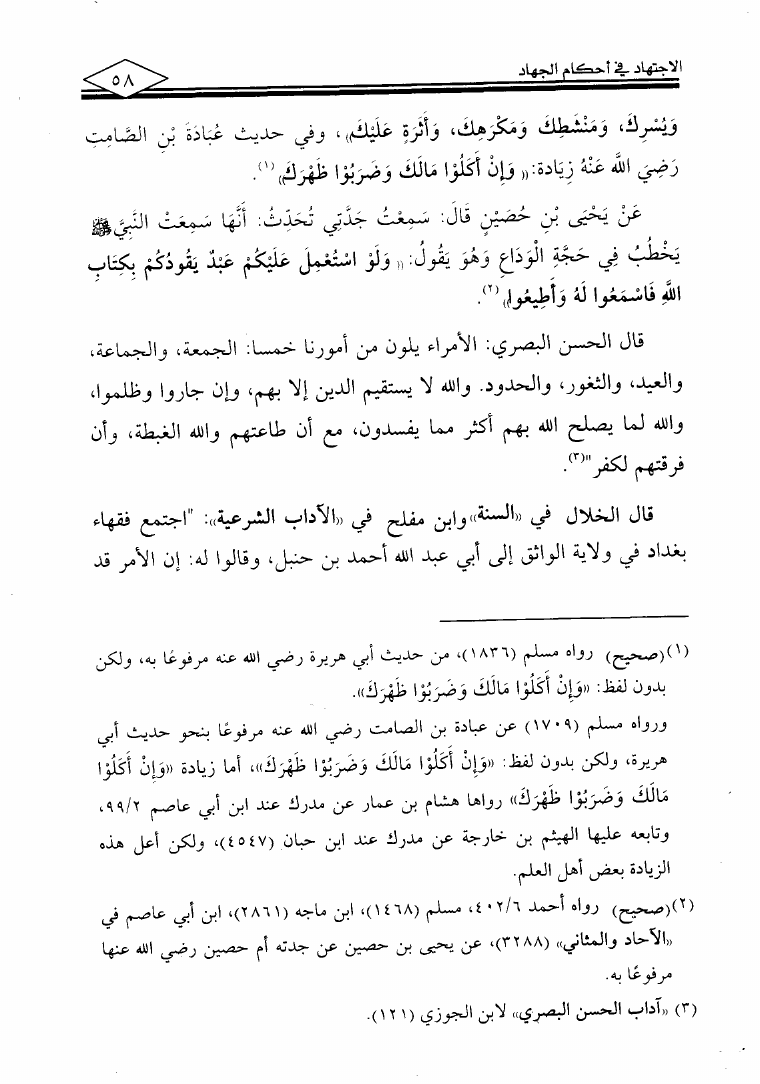 الاجتهاد في أحكام الجهاد
٥٨
وَيُسْرِكَ، وَمَنْشَطِكَ وَمَكْرَهِكَ، وَأَثَرَةٍ عَلَيْكَ»، وفي حديث عُبَادَةَ بْنِ الصَّامِتِ
رَضِيَ اللَّه عَنْهُ زِيَادة: «وَإِنْ أَكَلُوْا مَالَكَ وَضَرَبُوْا ظَهْرَكَ»(١).
عَنْ يَحْيَى بْنِ حُصَيْنٍ قَالَ: سَمِعْتُ جَدَّتِي تُحَدِّثُ: أَنَّهَا سَمِعَتْ النَّبِيَّ ﷺ
يَخْطُبُ فِي حَجَّةِ الْوَدَاعِ وَهُوَ يَقُولُ: «وَلَوْ اسْتُعْمِلَ عَلَيْكُمْ عَبْدٌ يَقُودُكُمْ بِكِتَابِ
اللَّهِ فَاسْمَعُوا لَهُ وَأَطِيعُوا»(٢).
قال الحسن البصري: الأمراء يلون من أمورنا خمسا: الجمعة، والجماعة،
والعيد، والثغور، والحدود. والله لا يستقيم الدين إلا بهم، وإن جاروا وظلموا،
والله لما يصلح الله بهم أكثر مما يفسدون، مع أن طاعتهم والله الغبطة، وأن
فرقتهم لكفر"(٣).
قال الخلال في «السنة» وابن مفلح في «الآداب الشرعية»: "اجتمع فقهاء
بغداد في ولاية الواثق إلى أبي عبد الله أحمد بن حنبل، وقالوا له: إن الأمر قد
(١) (صحيح) رواه مسلم (١٨٣٦)، من حديث أبي هريرة رضي الله عنه مرفوعًا به، ولكن
بدون لفظ: «وَإِنْ أَكَلُوْا مَالَكَ وَضَرَبُوْا ظَهْرَكَ».
ورواه مسلم (١٧٠٩) عن عبادة بن الصامت رضي الله عنه مرفوعًا بنحو حديث أبي
هريرة، ولكن بدون لفظ: «وَإِنْ أَكَلُوْا مَالَكَ وَضَرَبُوْا ظَهْرَكَ»، أما زيادة «وَإِنْ أَكَلُوْا
مَالَكَ وَضَرَبُوْا ظَهْرَكَ» رواها هشام بن عمار عن مدرك عند ابن أبي عاصم ٩٩/٢،
وتابعه عليها الهيثم بن خارجة عن مدرك عند ابن حبان (٤٥٤٧)، ولكن أعل هذه
الزيادة بعض أهل العلم.
(٢) (صحيح) رواه أحمد ٤٠٢/٦، مسلم (١٤٦٨)، ابن ماجه (٢٨٦١)، ابن أبي عاصم في
«الآحاد والمثاني» (٣٢٨٨)، عن يحيى بن حصين عن جدته أم حصين رضي الله عنها
مرفوعًا به.
(٣) «آداب الحسن البصري» لابن الجوزي (١٢١).